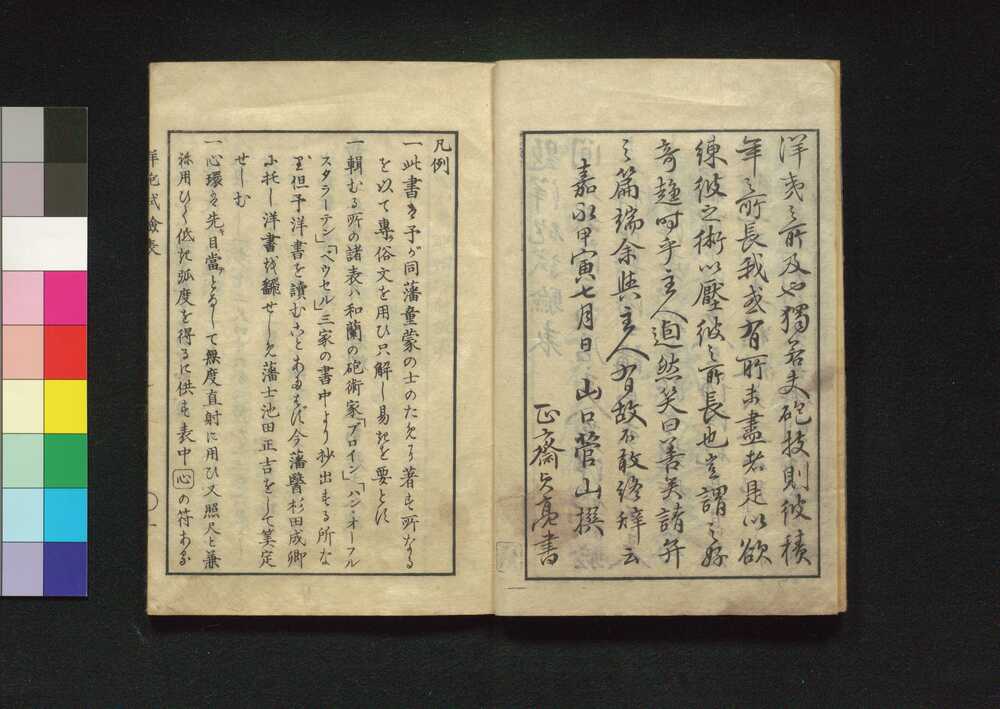 洋夷之所及也獨若夫砲技則彼積
年之所長我或有所未盡者是以欲
練彼之術以壓彼之所長也豈謂之好
奇趨時乎主人逌然笑曰善矣請弁
之篇端余與主人有故不敢終辭云
嘉永甲寅七月日 山口管山撰
正齋
書
凡例
一此書ハ予ガ同藩童蒙の士のためニ著す所なる
を以て專俗文を用ひ只解し易きを要とす
一輯むる所の諸表ハ和蘭の砲術家「ブロイン」「ハン・オーフル
スタラーテン」「ベウセル」三家の書中より抄出する所な
り但予洋書を讀むことあたはず今藩醫杉田成卿
に托し洋書を飜せしめ藩士池田正吉をして筭定
せしむ
一心環ハ先ヅ目當とるして無度直射に用ひ又照尺と兼
ね用ひて低き弧度を得るに供す表中心の符ある
洋砲試驗表
一